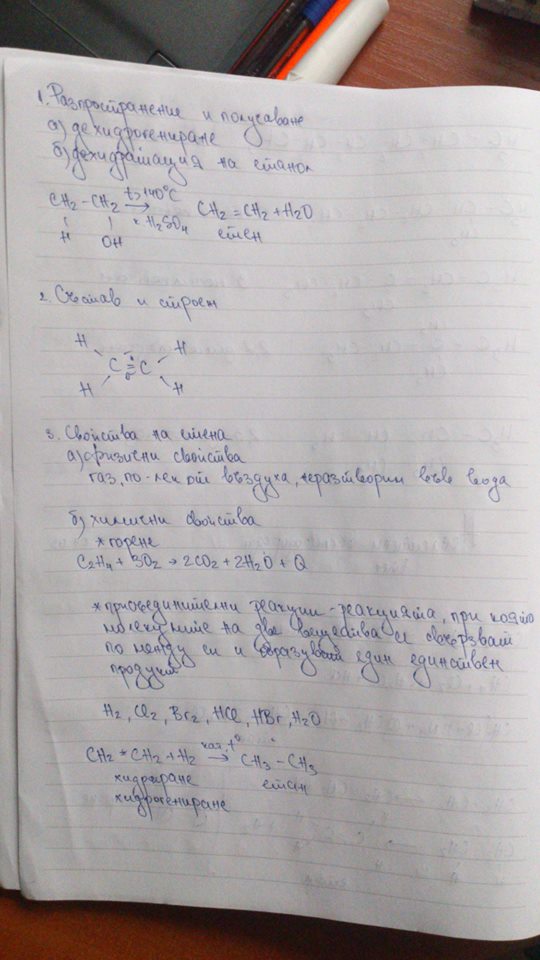 1. Разпространение и получаване
а) дехидрогениране
б) дехидратация на етанол
CH2-CH2 t>140°C → CH2=CH2+H2O
H OH к. H2SO4 етен
2. Състав и строеж
H H
C C
H H
3. Свойства на етена
а) физични свойства
газ, по-лек от въздуха, неразтворим във вода
б) химични свойства
* горене
C2H4 + 3O2 → 2CO2 + 2H2O + Q
* присъединителни реакции - реакцията, при която
молекулите на две вещества се свързват
по между си и образуват един единствен
продукт
H2, Cl2, Br2, HCl, HBr, H2O
CH2=CH2 + H2 кат., t° → CH3-CH3
хидриране етан
хидрогениране